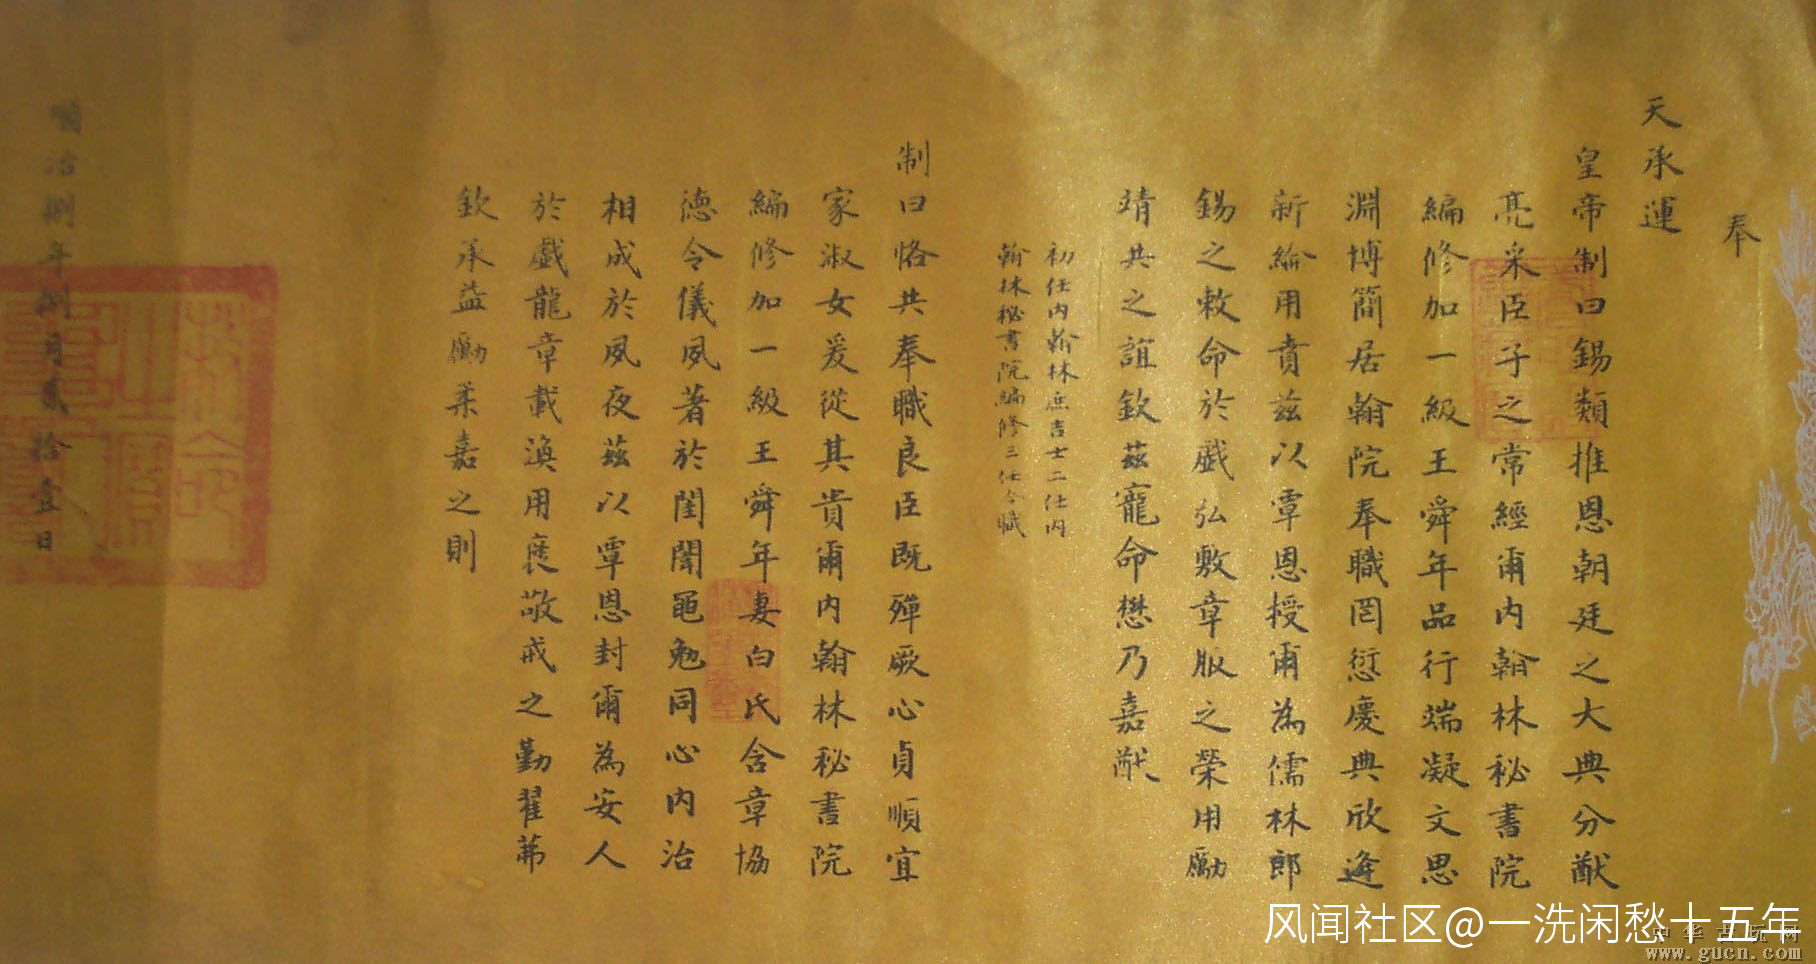 奉
天承運
皇帝制曰錫類推恩朝廷之大典分猷
亮采臣子之常經爾内翰林秘書院
編修加一級王舜年品行端凝文思
淵博簡居翰院奉職罔愆慶典欣逢
新綸用賁兹以覃恩授爾為儒林郎
錫之敕命於戲弘敷章服之榮用勵
靖共之誼欽兹寵命懋乃嘉猷
初任内翰林庶吉士二任内
翰林秘書院編修三任今職
制曰恪共奉職良臣既殫厥心貞順宜
家淑女爰從其貴爾内翰林秘書院
編修加一級王舜年妻白氏含章協
德令儀夙著於閨閫黽勉同心内治
相成於夙夜茲以覃恩封爾為安人
於戲龍章載渙用褒敬戒之勤翟茀
欽承益勵柔嘉之則
治捌年捌月貳拾壹日
風闻社区@一洗闲愁十五年
中华古玩网
www.gucn.com